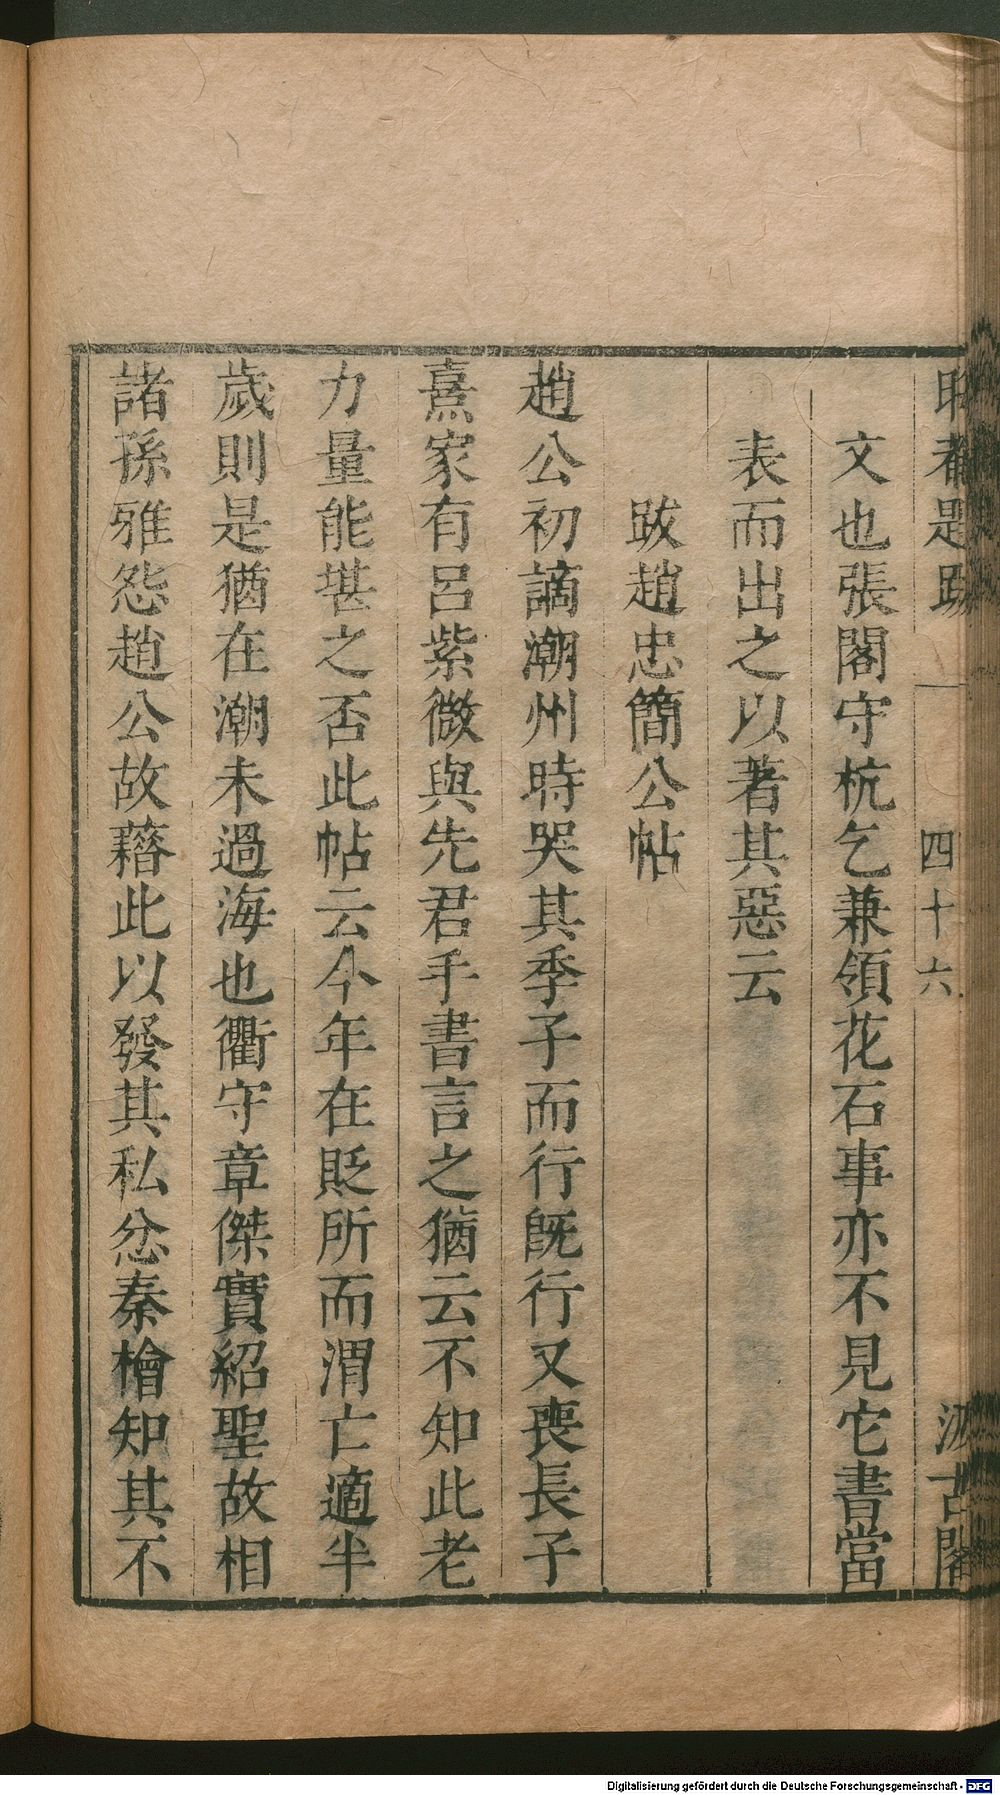 是跋 四十六 汲古閣
文也張閣守杭乞兼領花石事亦不見它書當
表而出之以著其惡云
跋趙忠簡公帖
趙公初謫潮州時哭其季子而行旣行又喪長子
熹家有呂紫微與先君手書言之猶云不知此老
力量能堪之否此帖云今年在貶所而渭亡適半
歲則是猶在潮未過海也衢守章傑實紹聖故相
諸孫雅怨趙公故藉此以發其私忿秦檜知其不
Digitalisierung gefördert durch die Deutsche Forschungsgemeinschaft - DFG